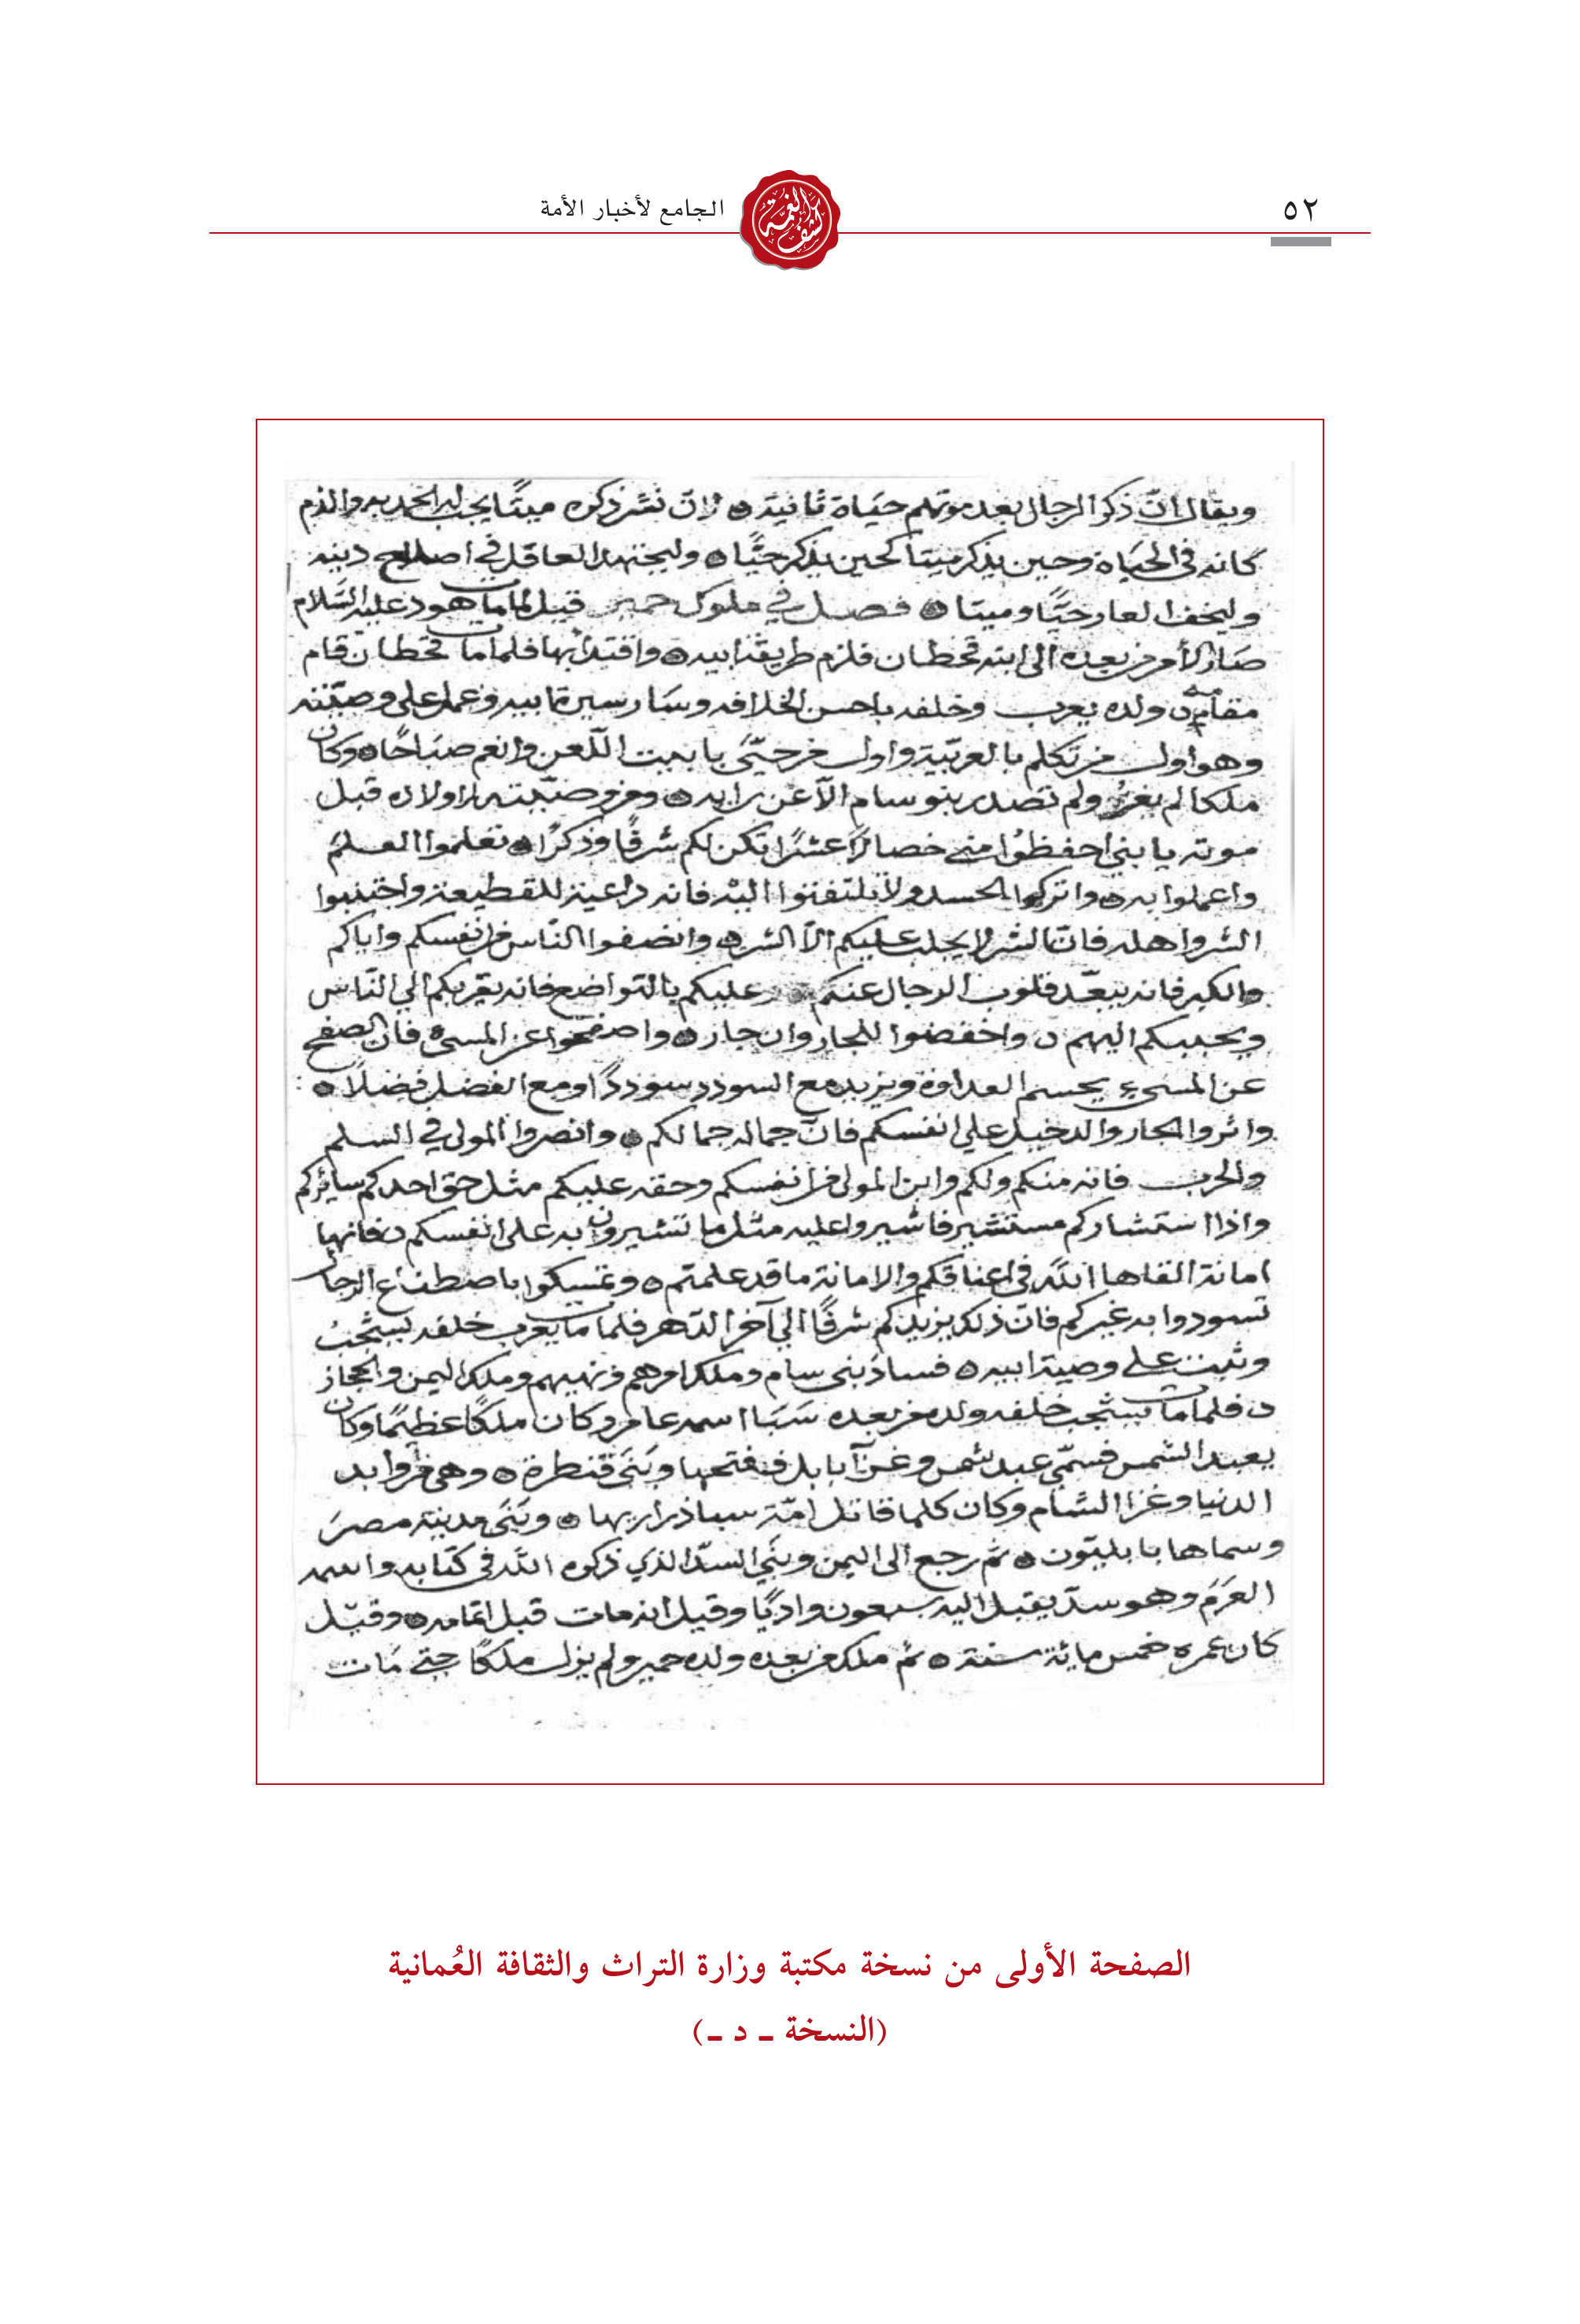 ٥٢
كشف الغمة
الجامع لأخبار الأمة
ويقال ان ذكر الرجال بعد موتهم حيَاة ثانية ه لانّ نشر ذكره ميتًا يجب له الحمد به والذم
كانه في الحيَاة وحين يذكر ميتا كحين يذكر حيًّا ه وليجتهد العاقل في اصلاح دينه
وليخف العار حيًّا وميتا ه فصل في ملوك حمير قيل لما مات هود عليه السَلام
صَار الأمر من بعده الى ابنه قحطان فلزم طريقة ابيه ه واقتدا بها فلما مات قحطان قام
مقامه ولده يعرب وخلفه باحسن الخلافه وسَار سيرة ابيه وعمل على وصيّته
وهو اول من تكلم بالعربّية واول من حيّى بابيت اللّعن وانعم صبَاحًا ه وكان
ملكا لم يغز ولم تصدر بنو سام الاّ عن رايه ه ومن وصيّته لاولاده قبل
موته يا بني احفظوُا مني خصالاً عشرًا تكن لكم شرفًا وذكرًا ه تعلموا العلم
واعملوا به ه واتركوا الحسد ولا تلتفتوا اليْه فانه داعية للقطيعة واجتنبوا
الشر واهله فانّ الشر لا يجلب عليكم الاّ الشر ه وانصفوا النّاس من انفسكم واياكم
والكبر فانه يبعّد قلوب الرجال عنكم وعليكم بالتواضع فانه يقربكم الي النّاس
ويحببكم اليهم ه واخفضوا للجار وان جار ه واصفحوا عن المسئ فان الصفح
عن المسيء يحسم العداوة ويزيد مع السودد سوددًا ومع الفضل فضلًا ه
واثروا الجار والدخيل علي انفسكم فانّ جماله جمالكم ه وانصروا المولى في السلم
والحرب فانه منكم ولكم وابن المولى من انفسكم وحقه عليكم مثل حق احدكم سايركم
واذا استشاركم مستشير فاشيروا عليه مثل ما تشيرون به على انفسكم ه فانها
امانة القاها الله في اعناقكم والامانة ما قد علمتم ه وتمسكوا باصطناع الرجال
تسودوا به غيركم فانّ ذلك يزيدكم شرفًا الي آخر الدّهر فلما مات يعرب خلفه يشجبُ
وثبت علي وصية ابيه ه فسادَ بنى سام وملك امرهم ونهيهم وملك اليمن والحجاز
ه فلما مات يشجب خلفه ولده من بعده سَبَا اسمه عامر وكان ملكًا عظيمًا وكان
يعبد الشمس فسمّي عبد شمس وغزا بابل ففتحها وبَنَى قنطرة ه وهي
الدنيا وغزا الشام وكان كلما قاتل امّة سبا ذراريها ه وبَنَى مدينة مصرَ
وسماها بابليّون ه ثم رجع الى اليمن وبنَي السدّ الذي ذكره الله في كتابه واسمه
العَرَم وهو سدّ يقبل اليه سبعون واديًا وقيل انه مات قبل اتمامه ه وقيل
كان عمره خمس مائة سنة ه ثم ملك من بعده ولده حمير ولم يزل ملكًا حتي مات
الصفحة الأولى من نسخة مكتبة وزارة التراث والثقافة العُمانية
(النسخة ـ د ـ)